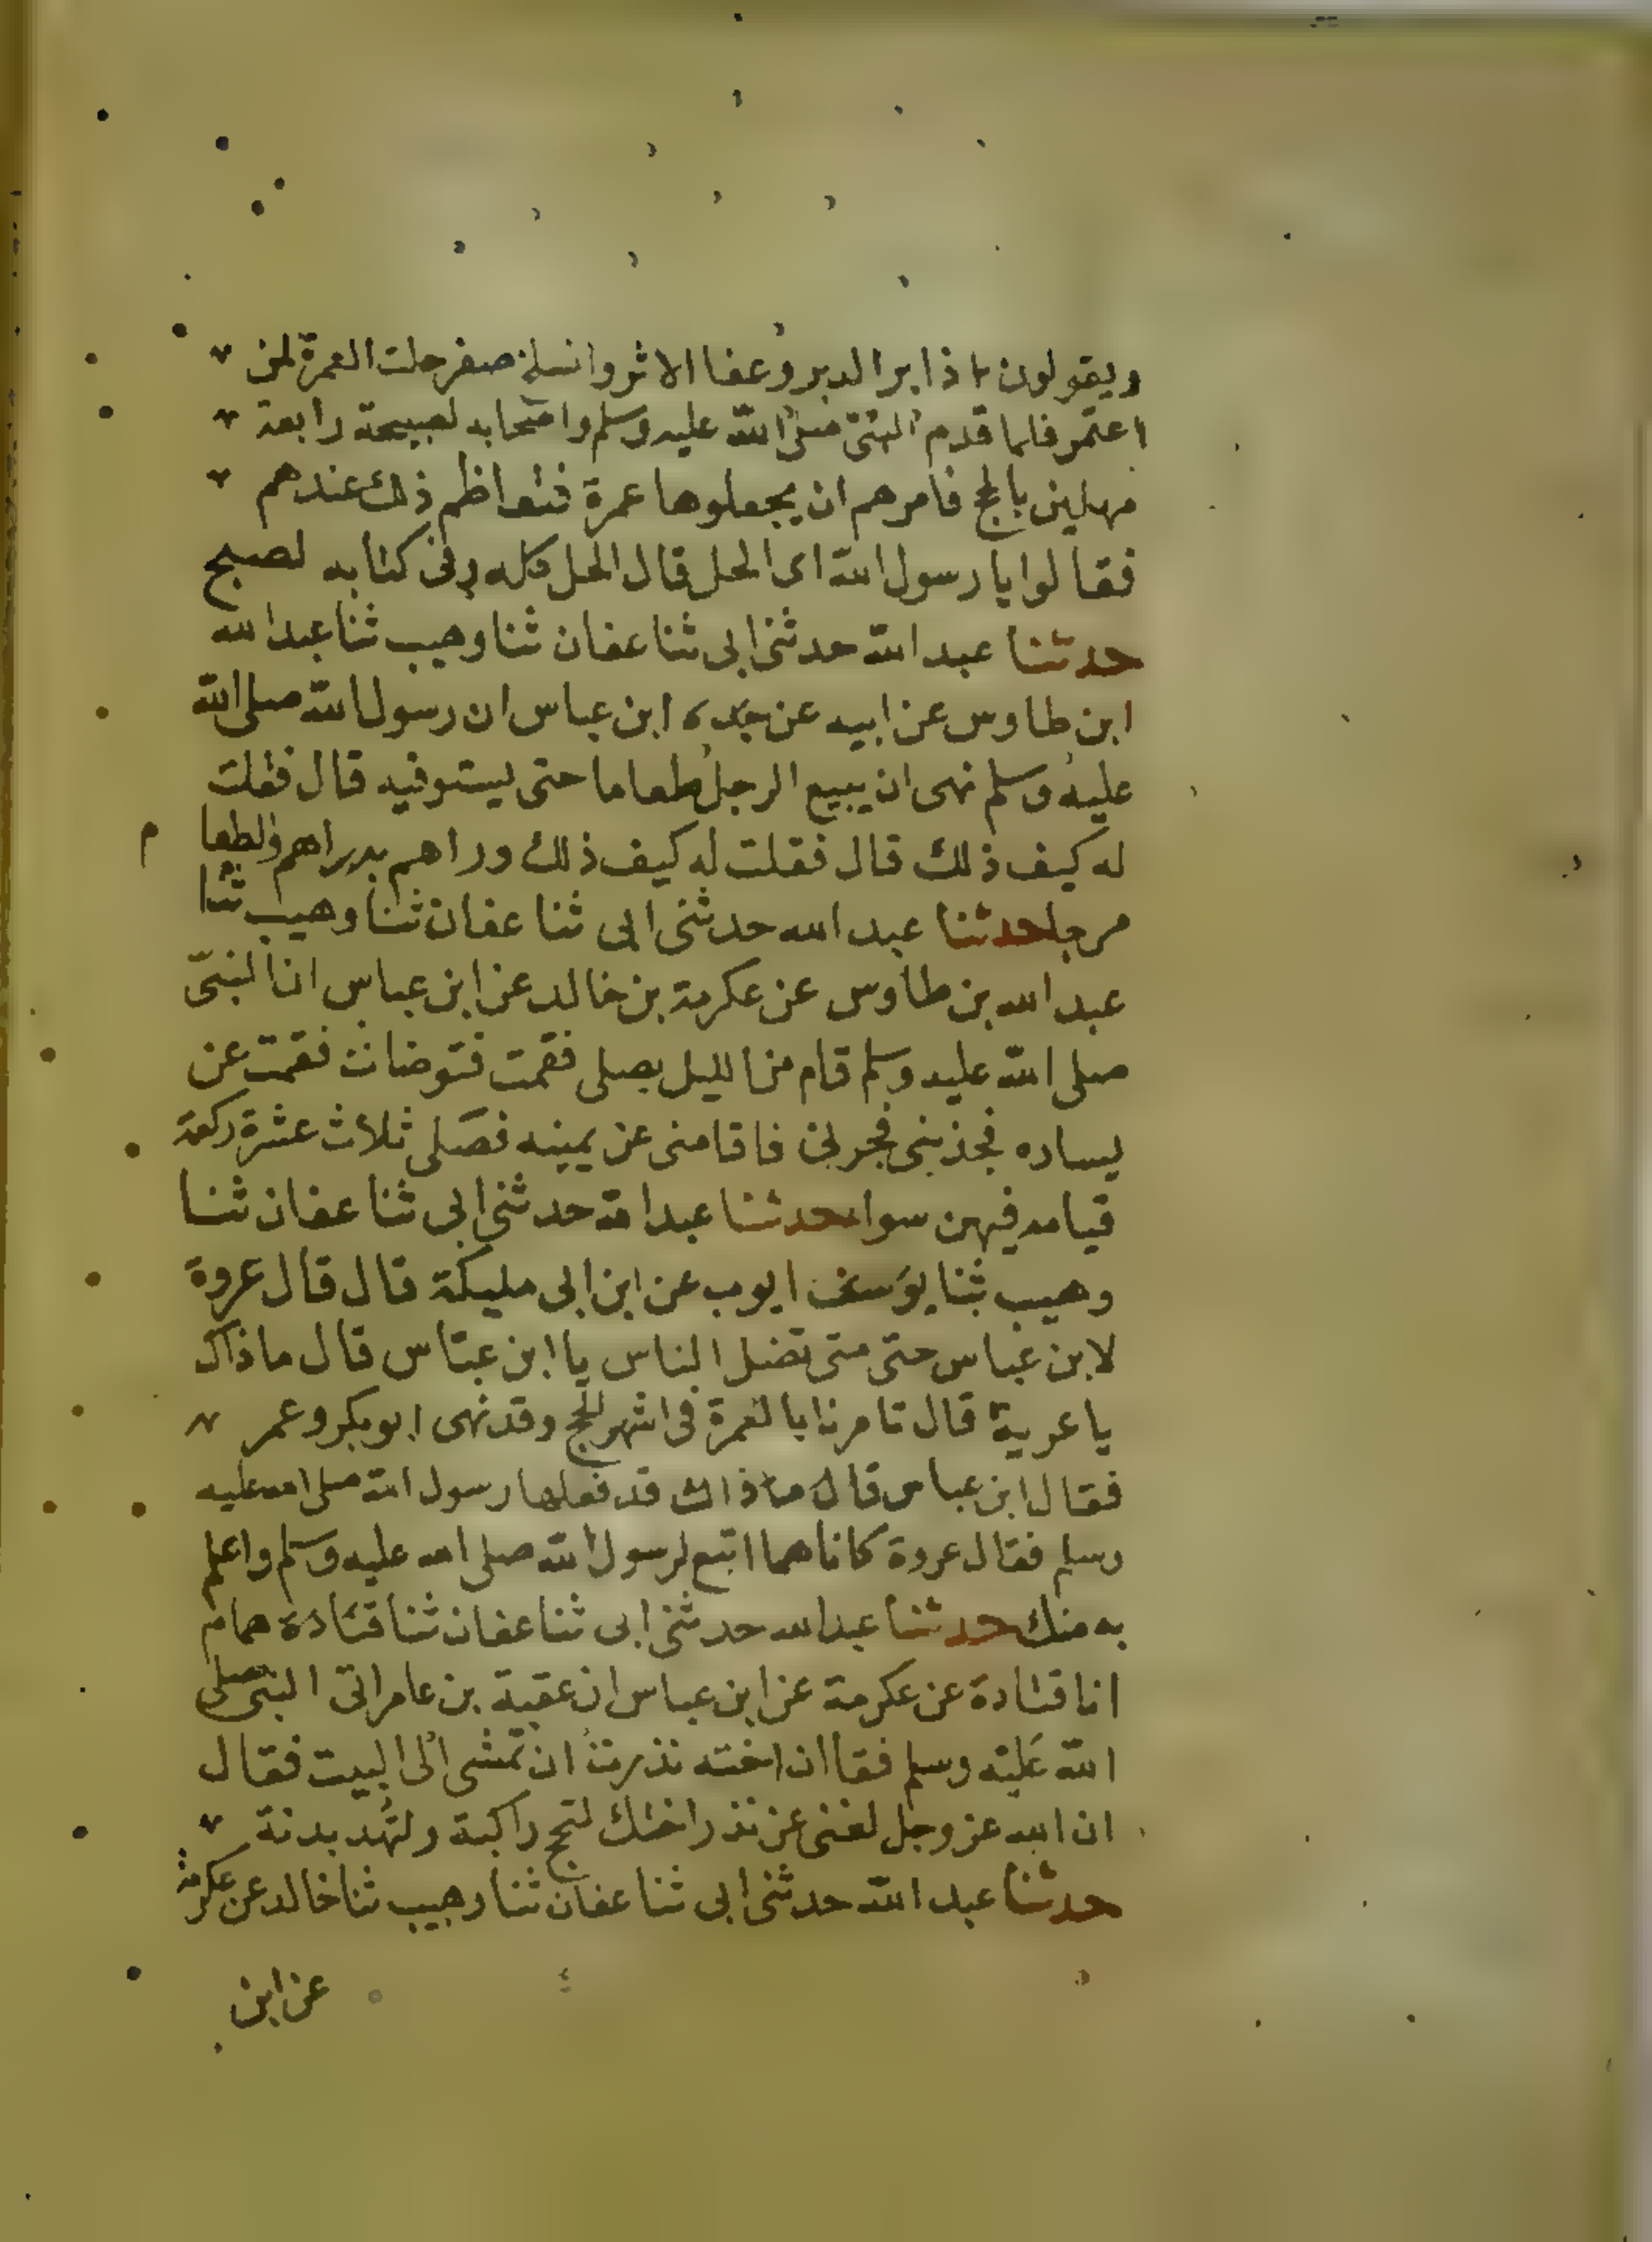 ويقولون اذا برا الدبر وعفا الاثر وانسلخ صفر حلت العمرة لمن
اعتمر فلما قدم النبى صلى الله عليه وسلم واصحابه لصبيحة رابعة
مهلين بالحج فامرهم ان يجعلوها عمرة فتعاظم ذلك عندهم
فقالوا يا رسول الله اى الحل قال الحل كله وفى كتابه لصبح
حدثنا عبد الله حدثنى ابى ثنا عفان ثنا وهيب ثنا عبد الله
ابن طاوس عن ابيه عن جده ابن عباس ان رسول الله صلى الله
عليه وسلم نهى ان يبيع الرجل طعاما حتى يستوفيه قال فقلت
له كيف ذلك قال فقلت له كيف ذلك وراهم بدراهم والطعام
مرجا حدثنا عبد الله حدثنى ابى ثنا عفان ثنا وهيب ثنا
عبد الله بن طاوس عن عكرمة بن خالد عن ابن عباس ان النبى
صلى الله عليه وسلم قام من الليل يصلى فقمت فتوضات فقمت عن
يساره فجذبنى فجرنى فاقامنى عن يمينه فصلى ثلاث عشرة ركعة
قيامه فيهن سواء حدثنا عبد الله حدثنى ابى ثنا عفان ثنا
وهيب ثنا ايوب عن ابن ابى مليكة قال قال عروة
لابن عباس حتى متى تضل الناس يا ابن عباس قال ما ذاك
يا عرية قال تامرنا بالعمرة فى اشهر الحج وقد نهى ابو بكر وعمر
فقال ابن عباس قال ما ذاك قد فعلها رسول الله صلى الله عليه
وسلم فقال عروة كانا هما اتبع لرسول الله صلى الله عليه وسلم واعلم
به منك حدثنا عبد الله حدثنى ابى ثنا عفان ثنا قتادة همام
انا قتادة عن عكرمة عن ابن عباس ان عقبة بن عامر اتى النبى صلى
الله عليه وسلم فقا ان اخته نذرت ان تمشى الى البيت فقال
ان الله عز وجل لغنى عن نذر اختك لتحج راكبة ولتهد بدنة
حدثنا عبد الله حدثنى ابى ثنا عفان ثنا وهيب ثنا خالد عن عكرمة
عن ابن